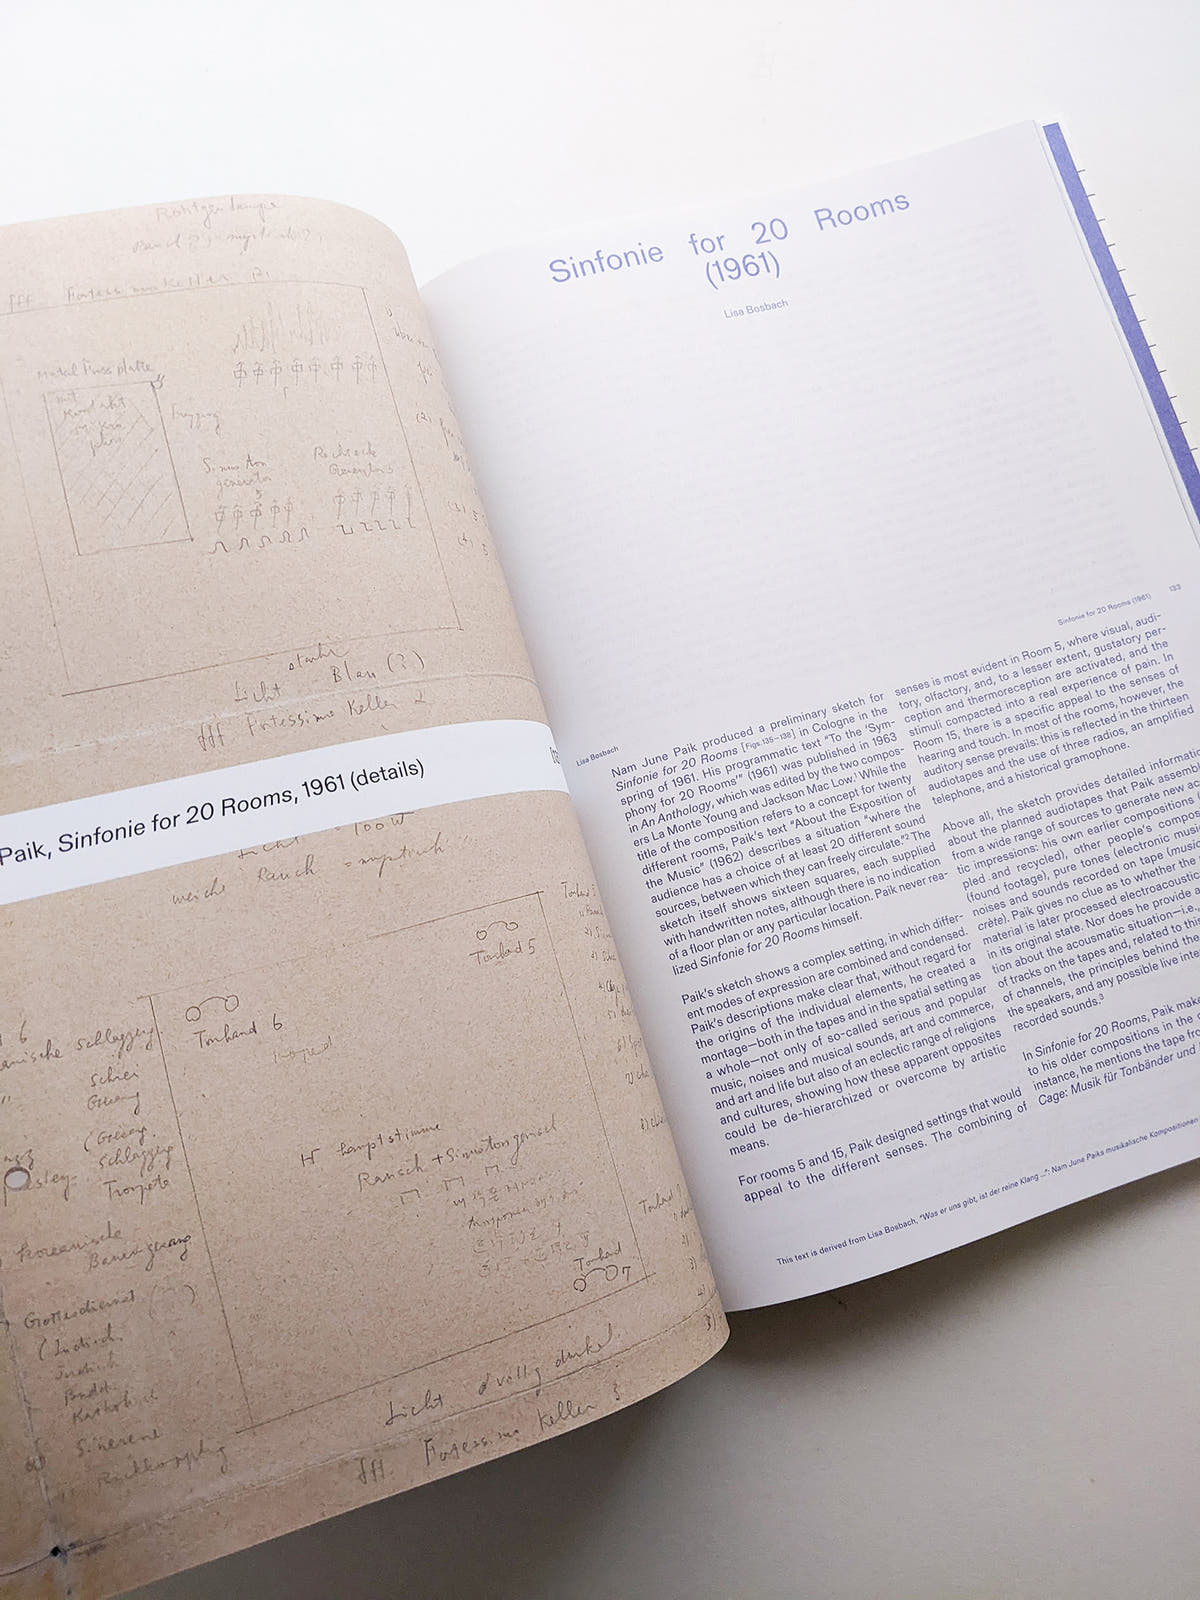 fff. Fortessimo Keller 1
Metal Fuss platte
mit
Kontakt
mikro
phon
Sinuston
generator
5
Rechteck
Generators
(2)
(3) 5
(4) 5
starke
Licht Blau (?)
fff Fortessimo Keller 2
Paik, Sinfonie for 20 Rooms, 1961 (details)
Licht = 100 W
weiche Rauch = mystisch"
Tonband 5
Tonband 6
6
Schlagzeug
"
Schrei
Gesang
(Gesang.
Schlagzeug
Trompete
Hauptstimme
Rausch + Sinustongemisch
Koreanische
Bauerngesang
Gottesdienst
Tonband
7
Licht völlig dunkel.
fff. Fortessimo Keller 3
Sinfonie for 20 Rooms
(1961)
Lisa Bosbach
Sinfonie for 20 Rooms (1961)
133
Lisa Bosbach
Nam June Paik produced a preliminary sketch for
Sinfonie for 20 Rooms [Figs.135–138] in Cologne in the
spring of 1961. His programmatic text “To the ‘Sym-
phony for 20 Rooms’” (1961) was published in 1963
in An Anthology, which was edited by the two compos-
ers La Monte Young and Jackson Mac Low.¹ While the
title of the composition refers to a concept for twenty
different rooms, Paik’s text “About the Exposition of
the Music” (1962) describes a situation “where the
audience has a choice of at least 20 different sound
sources, between which they can freely circulate.”² The
sketch itself shows sixteen squares, each supplied
with handwritten notes, although there is no indication
of a floor plan or any particular location. Paik never rea-
lized Sinfonie for 20 Rooms himself.
Paik’s sketch shows a complex setting, in which differ-
ent modes of expression are combined and condensed.
Paik’s descriptions make clear that, without regard for
the origins of the individual elements, he created a
montage—both in the tapes and in the spatial setting as
a whole—not only of so-called serious and popular
music, noises and musical sounds, art and commerce,
and art and life but also of an eclectic range of religions
and cultures, showing how these apparent opposites
could be de-hierarchized or overcome by artistic
means.
For rooms 5 and 15, Paik designed settings that would
appeal to the different senses. The combining of
senses is most evident in Room 5, where visual, audi-
tory, olfactory, and, to a lesser extent, gustatory per-
ception and thermoreception are activated, and the
stimuli compacted into a real experience of pain. In
Room 15, there is a specific appeal to the senses of
hearing and touch. In most of the rooms, however, the
auditory sense prevails: this is reflected in the thirteen
audiotapes and the use of three radios, an amplified
telephone, and a historical gramophone.
Above all, the sketch provides detailed informati
about the planned audiotapes that Paik assembl
from a wide range of sources to generate new ac
tic impressions: his own earlier compositions (
pled and recycled), other people’s compos
(found footage), pure tones (electronic music
noises and sounds recorded on tape (musi
crète). Paik gives no clue as to whether the
material is later processed electroacoustic
in its original state. Nor does he provide a
tion about the acousmatic situation—i.e.,
of tracks on the tapes and, related to this
of channels, the principles behind the
the speakers, and any possible live inte
recorded sounds.³
In Sinfonie for 20 Rooms, Paik make
to his older compositions in the c
instance, he mentions the tape fro
Cage: Musik für Tonbänder und
This text is derived from Lisa Bosbach, “Was er uns gibt, ist der reine Klang ...”: Nam June Paiks musikalische Kompositionen